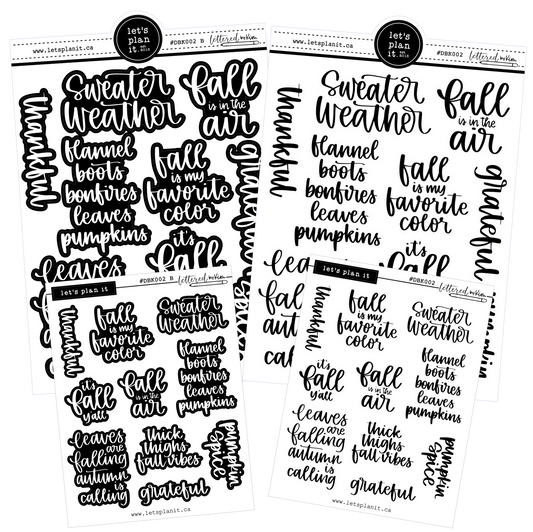 let's
plan
it.
EST. 2013
www.letsplanit.ca
#DBK002 B
lettered.mrkim
thankful
Sweater
weather
fall
is in the
air
flannel
boots
bonfires
leaves
pumpkins
fall
is my
favorite
color
grateful
it's
fall
leaves
let's
plan
it.
EST. 2013
www.letsplanit.ca
#DBK002
thankful
Sweater
weather
fall
is in the
air
flannel
boots
bonfires
leaves
pumpkins
fall
is my
favorite
color
grateful
it's
fall
let's plan it
#DBK002 B
thankful
fall
is my
favorite
color
Sweater
weather
flannel
boots
bonfires
leaves
pumpkins
it's
fall
y'all
fall
is in the
air
leaves
are
falling
autumn
is
calling
thick
thighs
fall vibes
pumpkin
spice
grateful
www.letsplanit.ca
let's plan it
#DBK002
thankful
fall
is my
favorite
color
Sweater
weather
flannel
boots
bonfires
leaves
pumpkins
it's
fall
y'all
fall
is in the
air
leaves
are
falling
autumn
is
calling
thick
thighs
fall vibes
pumpkin
spice
grateful
www.letsplanit.ca